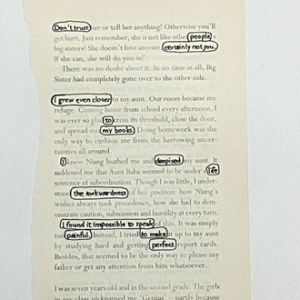 Don't trust her or tell her anything! Otherwise you'll
get hurt. Just remember, she is not like other people
big sisters! She doesn't love anyone, certainly not you.
If she can, she will do you in!"
There was no doubt about it. In no time at all, Big
Sister had completely gone over to the other side.
I grew even closer to my aunt. Our room became my
refuge. Coming home from school every afternoon, I
was ever so glad to cross its threshold, close the door,
and spread out my books. Doing homework was the
only way to cushion me from the harrowing uncer-
tainties all around.
I knew Niang loathed me and despised my aunt. It
saddened me that Aunt Baba seemed to be under a life
sentence of subordination. Though I was little, I under-
stood the awkwardness of her position: how Niang's
wishes always took precedence, how she had to dem-
onstrate caution, submission and humility at every turn.
I found it impossible to speak of this. It was simply
painful. Instead, I tried to make it up to my aunt
by studying hard and getting perfect report cards.
Besides, that seemed to be the only way to please my
father or get any attention from him whatsoever.
I was seven years old and in the second grade. The girls
in my class nicknamed me "Genius" partly because